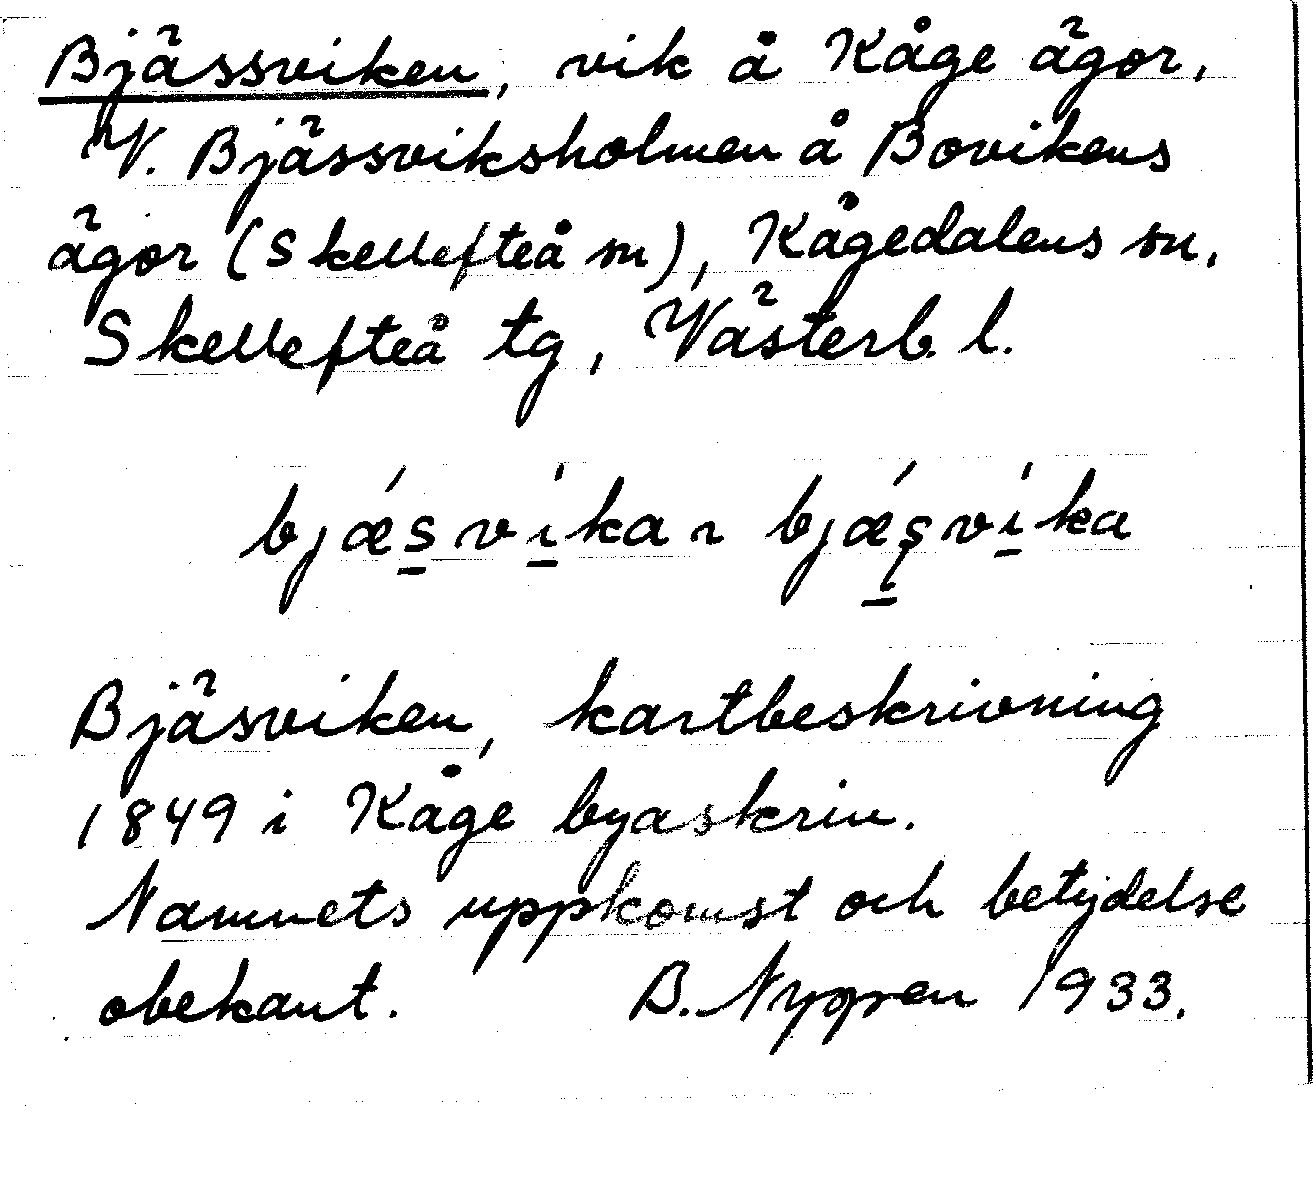 Bjässviken, vik å Kåge ägor,
V. Bjässviksholmen å Bovikens
ägor (Skellefteå sn), Kågedalens sn,
Skellefteå tg, Västerb. l.
bjǽsví̱ka ~ bjǽşví̱ka
Bjäsviken, kartbeskrivning
1849 i Kåge byaskrin.
Namnets uppkomst och betydelse
obekant. B. Nygren 1933.